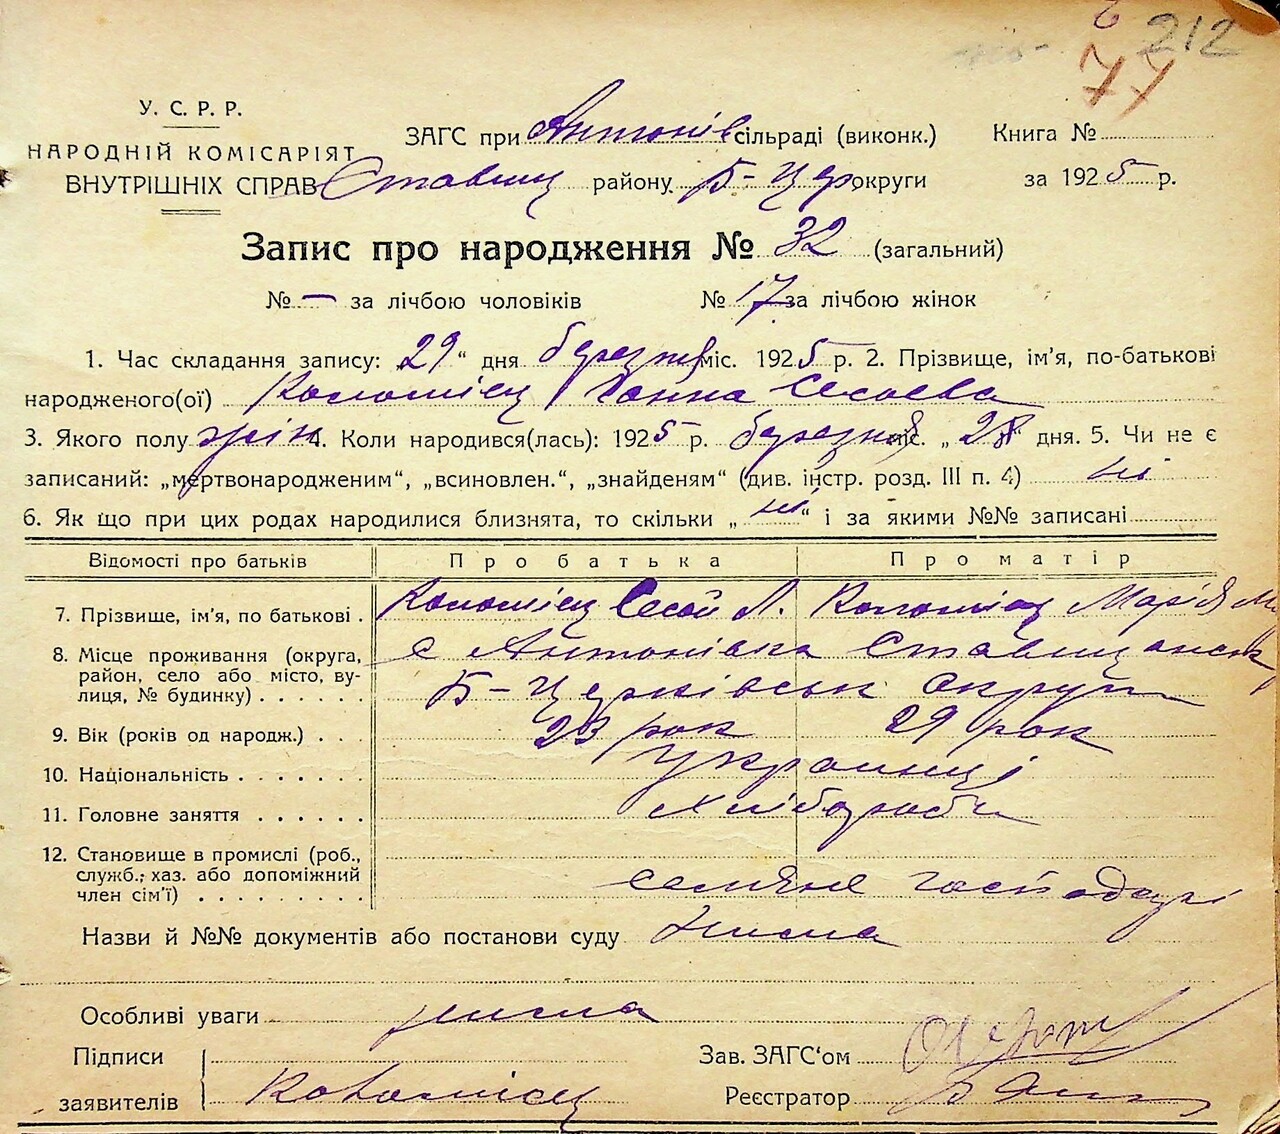 212
77
У. С. Р. Р.
НАРОДНІЙ КОМІСАРІЯТ
ВНУТРІШНІХ СПРАВ
ЗАГС при Антонів сільраді (виконк.) Книга №
Ставищ району Б-Цер округи за 1925 р.
Запис про народження № 32 (загальний)
№ — за лічбою чоловіків № 17 за лічбою жінок
1. Час складання запису: 29 “ дня березня міс. 1925 р. 2. Прізвище, ім’я, по-батькові
народженого(ої) Коломієц Ганна
3. Якого полу жін 4. Коли народився(лась): 1925 р. березня міс. „ 28 “ дня. 5. Чи не є
записаний: „мертвонародженим“, „всиновлен.“, „знайденям“ (див. інстр. розд. III п. 4) ні
6. Як що при цих родах народилися близнята, то скільки „ ні “ і за якими №№ записані
Відомості про батьків Про батька Про матір
7. Прізвище, ім’я, по батькові . Коломієц Л. Коломієц Марія
8. Місце проживання (округа, район, село або місто, вулиця, № будинку) . . . . . с Антонівка Ставищанськ
Б-Церківськ округи
9. Вік (років од народж.) . . . 23 рок 29 рок
10. Національність . . . . . . . Українці
11. Головне заняття . . . . . . Хлібороби
12. Становище в промислі (роб., служб.; хаз. або допоміжний член сім’ї) . . . . . . . . . селяне господарі
Назви й №№ документів або постанови суду Нима
Особливі уваги нима
Підписи
заявителів Коломіец
Зав. ЗАГС‘ом
Реєстратор